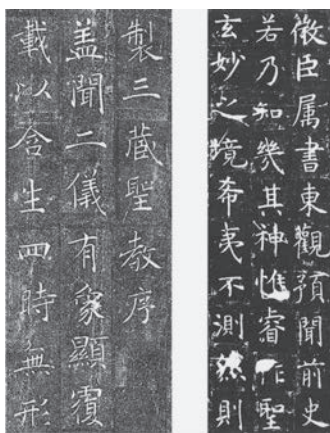 微臣属書東觀預聞前史
若乃知幾其神惟睿作聖
玄妙之境希夷不測然則
製三藏聖教序
盖聞二儀有象顯覆
載以含生四時無形